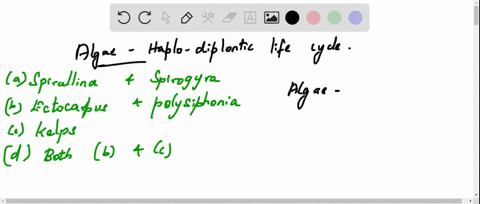 Algae - Haplo-diplontic life cycle.
(a) Spirallina + Spirogyra
(b) Ectocarpus + polysiphonia
(c) Kelps
(d) Both (b) + (c)
Algae -